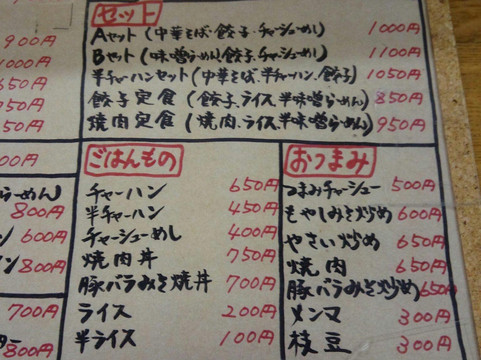 セット
Aセット(中華そば、餃子、チャーシューめし) 1000円
Bセット(味噌らーめん、餃子、チャーシューめし) 1100円
半チャーハンセット(中華そば、半チャーハン、餃子) 1050円
餃子定食(餃子、ライス、半味噌らーめん) 850円
焼肉定食(焼肉、ライス、半味噌らーめん) 950円
ごはんもの
チャーハン 650円
半チャーハン 450円
チャーシューめし 400円
焼肉丼 750円
豚バラみそ焼丼 700円
ライス 200円
半ライス 100円
おつまみ
つまみチャーシュー 500円
もやしみそ炒め 600円
やさい炒め 650円
焼肉 650円
豚バラみそ炒め 650円
メンマ 300円
枝豆 300円
900円
000円
650円
50円
50円
00円
らーめん)
800円
600円
800円
700円
800円